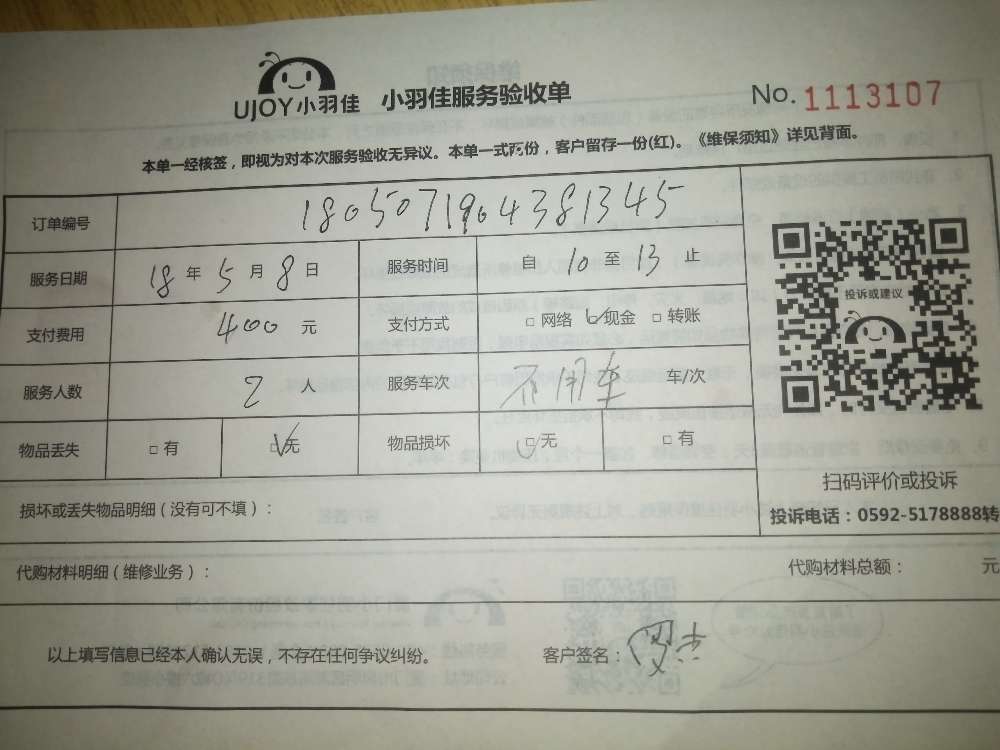 UJOY小羽佳 小羽佳服务验收单 No. 1113107
本单一经核签，即视为对本次服务验收无异议。本单一式两份，客户留存一份(红)。《维保须知》详见背面。
订单编号 180507190438 1345
服务日期 18 年 5 月 8 日 服务时间 自 10 至 13 止
投诉或建议
支付费用 400 元 支付方式 □ 网络 □现金 □ 转账
服务人数 2 人 服务车次 不用车 车/次
物品丢失 □ 有 □无 物品损坏 □无 □ 有
扫码评价或投诉
损坏或丢失物品明细（没有可不填）：
投诉电话：0592-5178888转
代购材料明细（维修业务）： 代购材料总额： 元
以上填写信息已经本人确认无误，不存在任何争议纠纷。 客户签名：